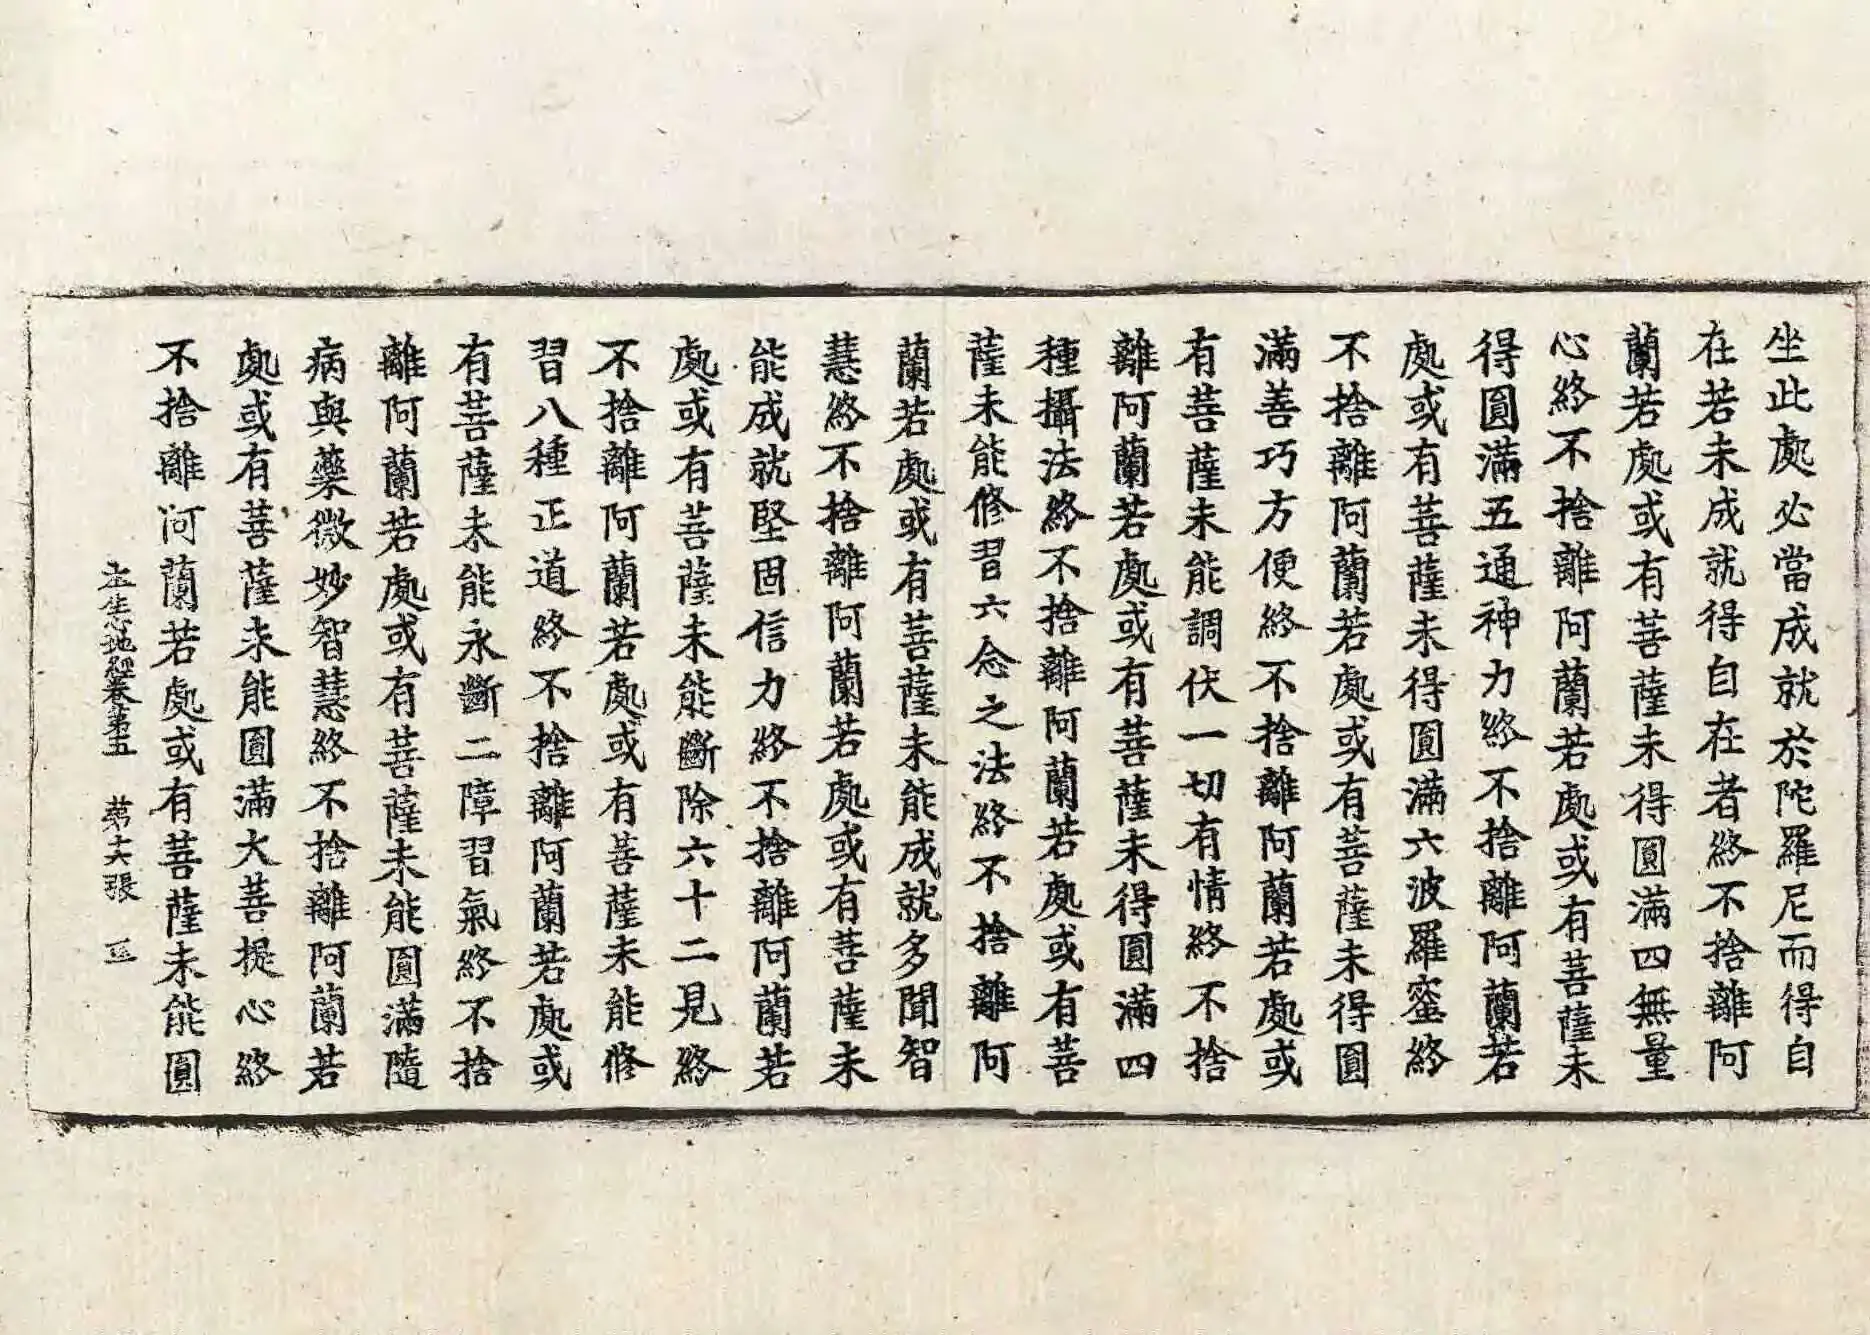 坐此處必當成就於陀羅尼而得自
在若未成就得自在者終不捨離阿
蘭若處或有菩薩未得圓滿四無量
心終不捨離阿蘭若處或有菩薩未
得圓滿五通神力終不捨離阿蘭若
處或有菩薩未得圓滿六波羅蜜終
不捨離阿蘭若處或有菩薩未得圓
滿善巧方便終不捨離阿蘭若處或
有菩薩未能調伏一切有情終不捨
離阿蘭若處或有菩薩未得圓滿四
種攝法終不捨離阿蘭若處或有菩
薩未能修習六念之法終不捨離阿
蘭若處或有菩薩未能成就多聞智
慧終不捨離阿蘭若處或有菩薩未
能成就堅固信力終不捨離阿蘭若
處或有菩薩未能斷除六十二見終
不捨離阿蘭若處或有菩薩未能修
習八種正道終不捨離阿蘭若處或
有菩薩未能永斷二障習氣終不捨
離阿蘭若處或有菩薩未能圓滿隨
病與藥微妙智慧終不捨離阿蘭若
處或有菩薩未能圓滿大菩提心終
不捨離阿蘭若處或有菩薩未能圓
生心地經卷第五 第六張